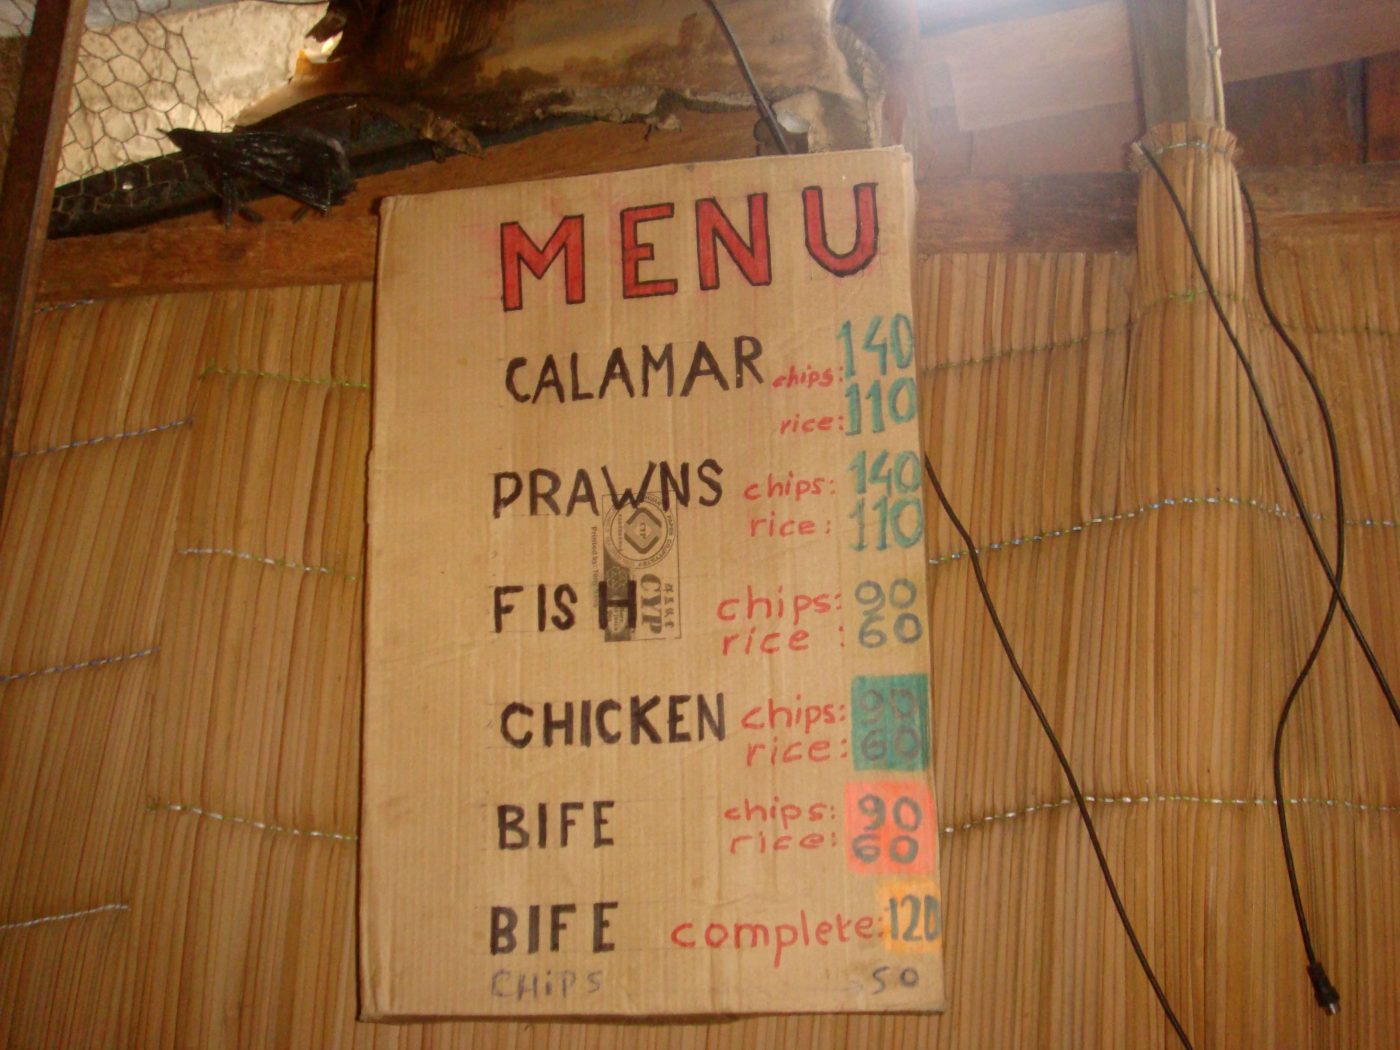 MENU
CALAMAR chips: 140
rice: 110
PRAWNS chips: 140
rice: 110
FISH chips: 90
rice: 60
CHICKEN chips: 90
rice: 60
BIFE chips: 90
rice: 60
BIFE complete: 120
CHiPS 50
CYP